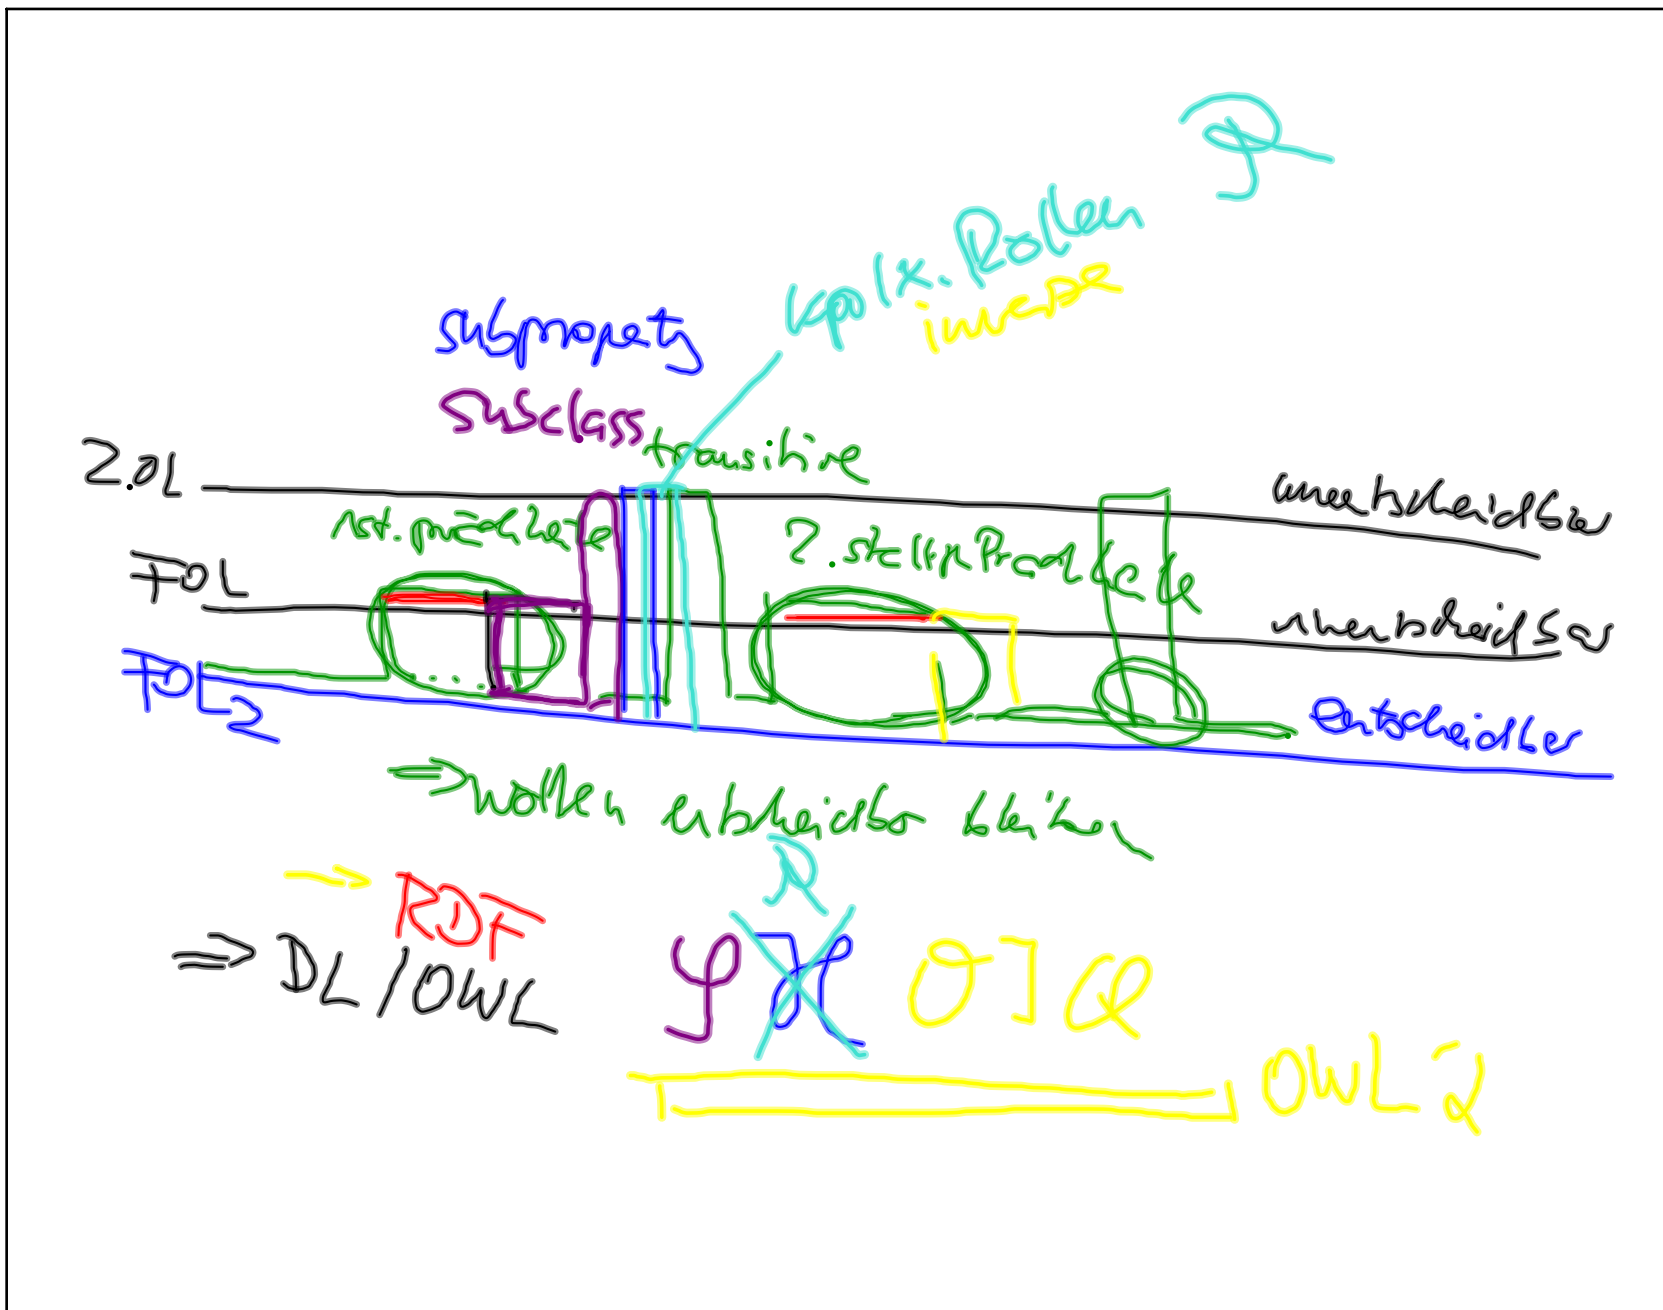 R
kplx. Rollen
inverse
subproperty
subclass
transitive
2.OL
unentscheidbar
1st. prädikate
2. stellig Prädikate
FOL
unentscheidbar
FOL2
entscheidbar
⇒ wollen entscheidbar bleiben
→ RDF
R
⇒ DL/OWL
S H O I Q
OWL 2